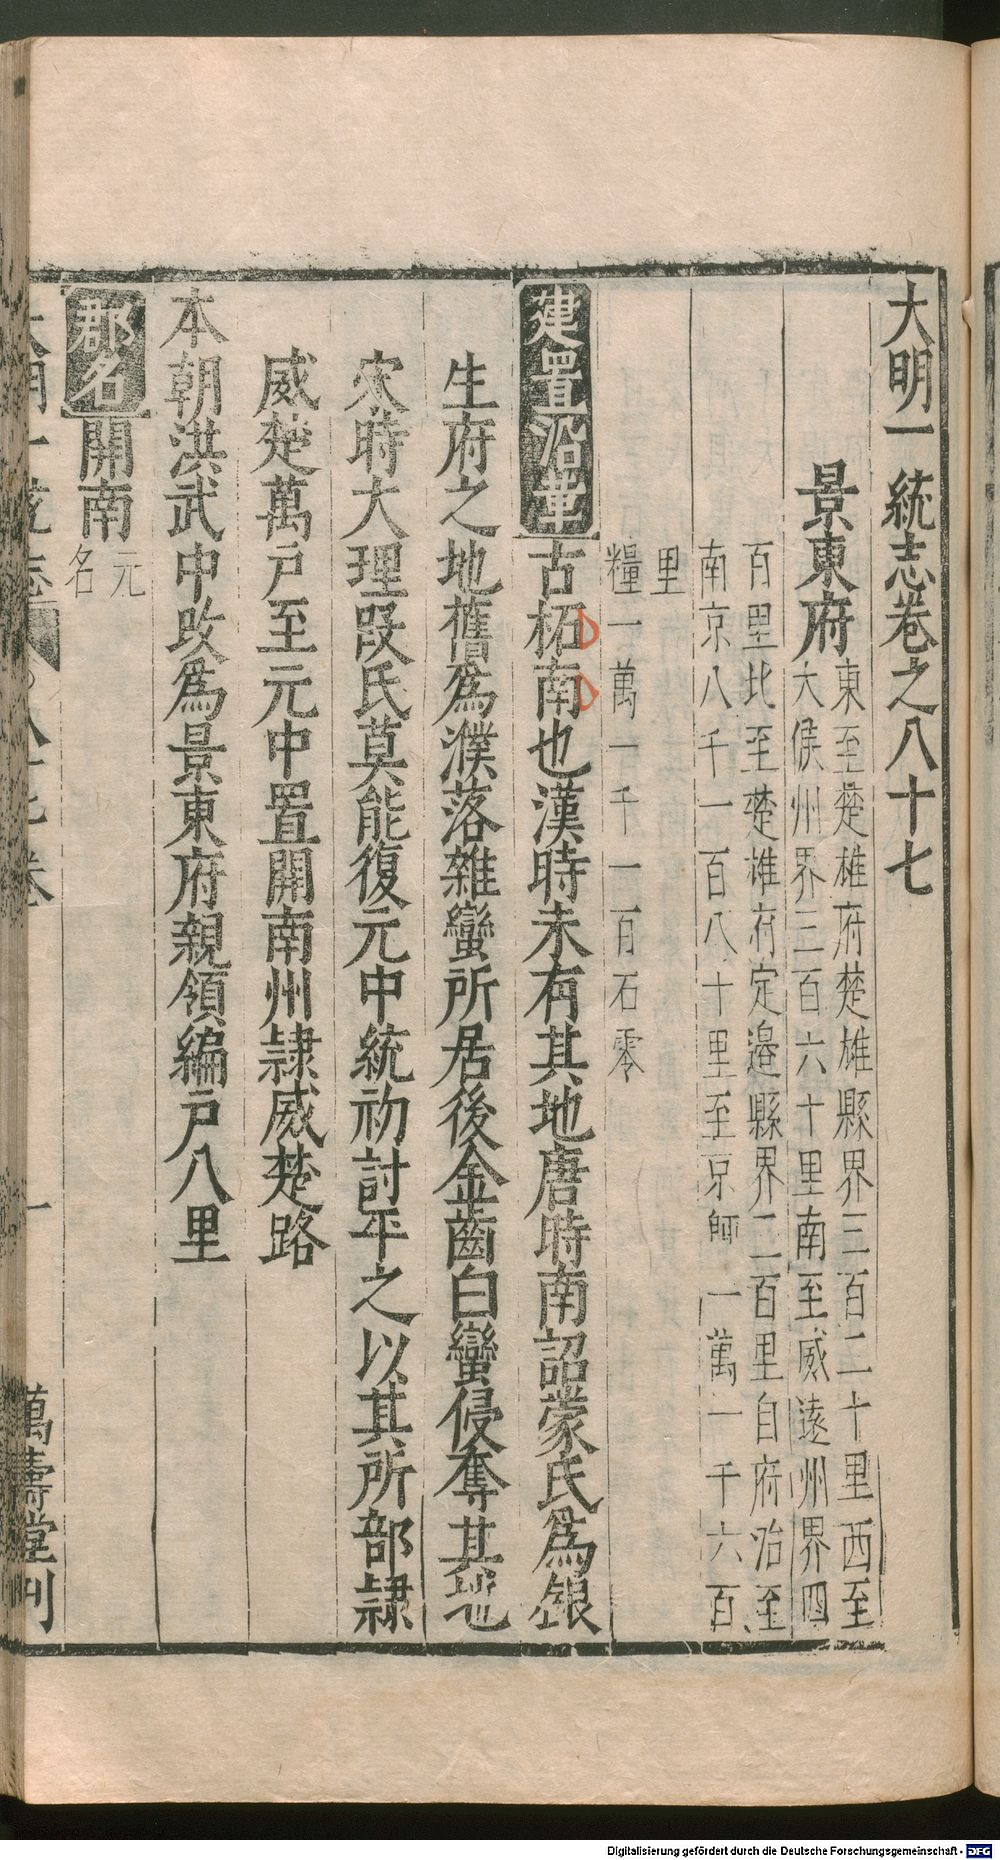 大明一統志卷之八十七
景東府
東至楚雄府楚雄縣界三百二十里西至
大侯州界三百六十里南至威遠州界四
百里北至楚雄府定邉縣界二百里自府治至
南京八千一百八十里至京師一萬一千六百
里
糧一萬一千一百石零
建置沿革古柘南也漢時未有其地唐時南詔蒙氏爲銀
生府之地舊爲濮落雜蠻所居後金齒白蠻侵奪其地
宋時大理段氏莫能復元中統初討平之以其所部隷
威楚萬戸至元中置開南州隷威楚路
本朝洪武中改爲景東府親領編戸八里
郡名開南元
名
大明一統志 八十七卷 一 萬壽堂刊
Digitalisierung gefördert durch die Deutsche Forschungsgemeinschaft - DFG